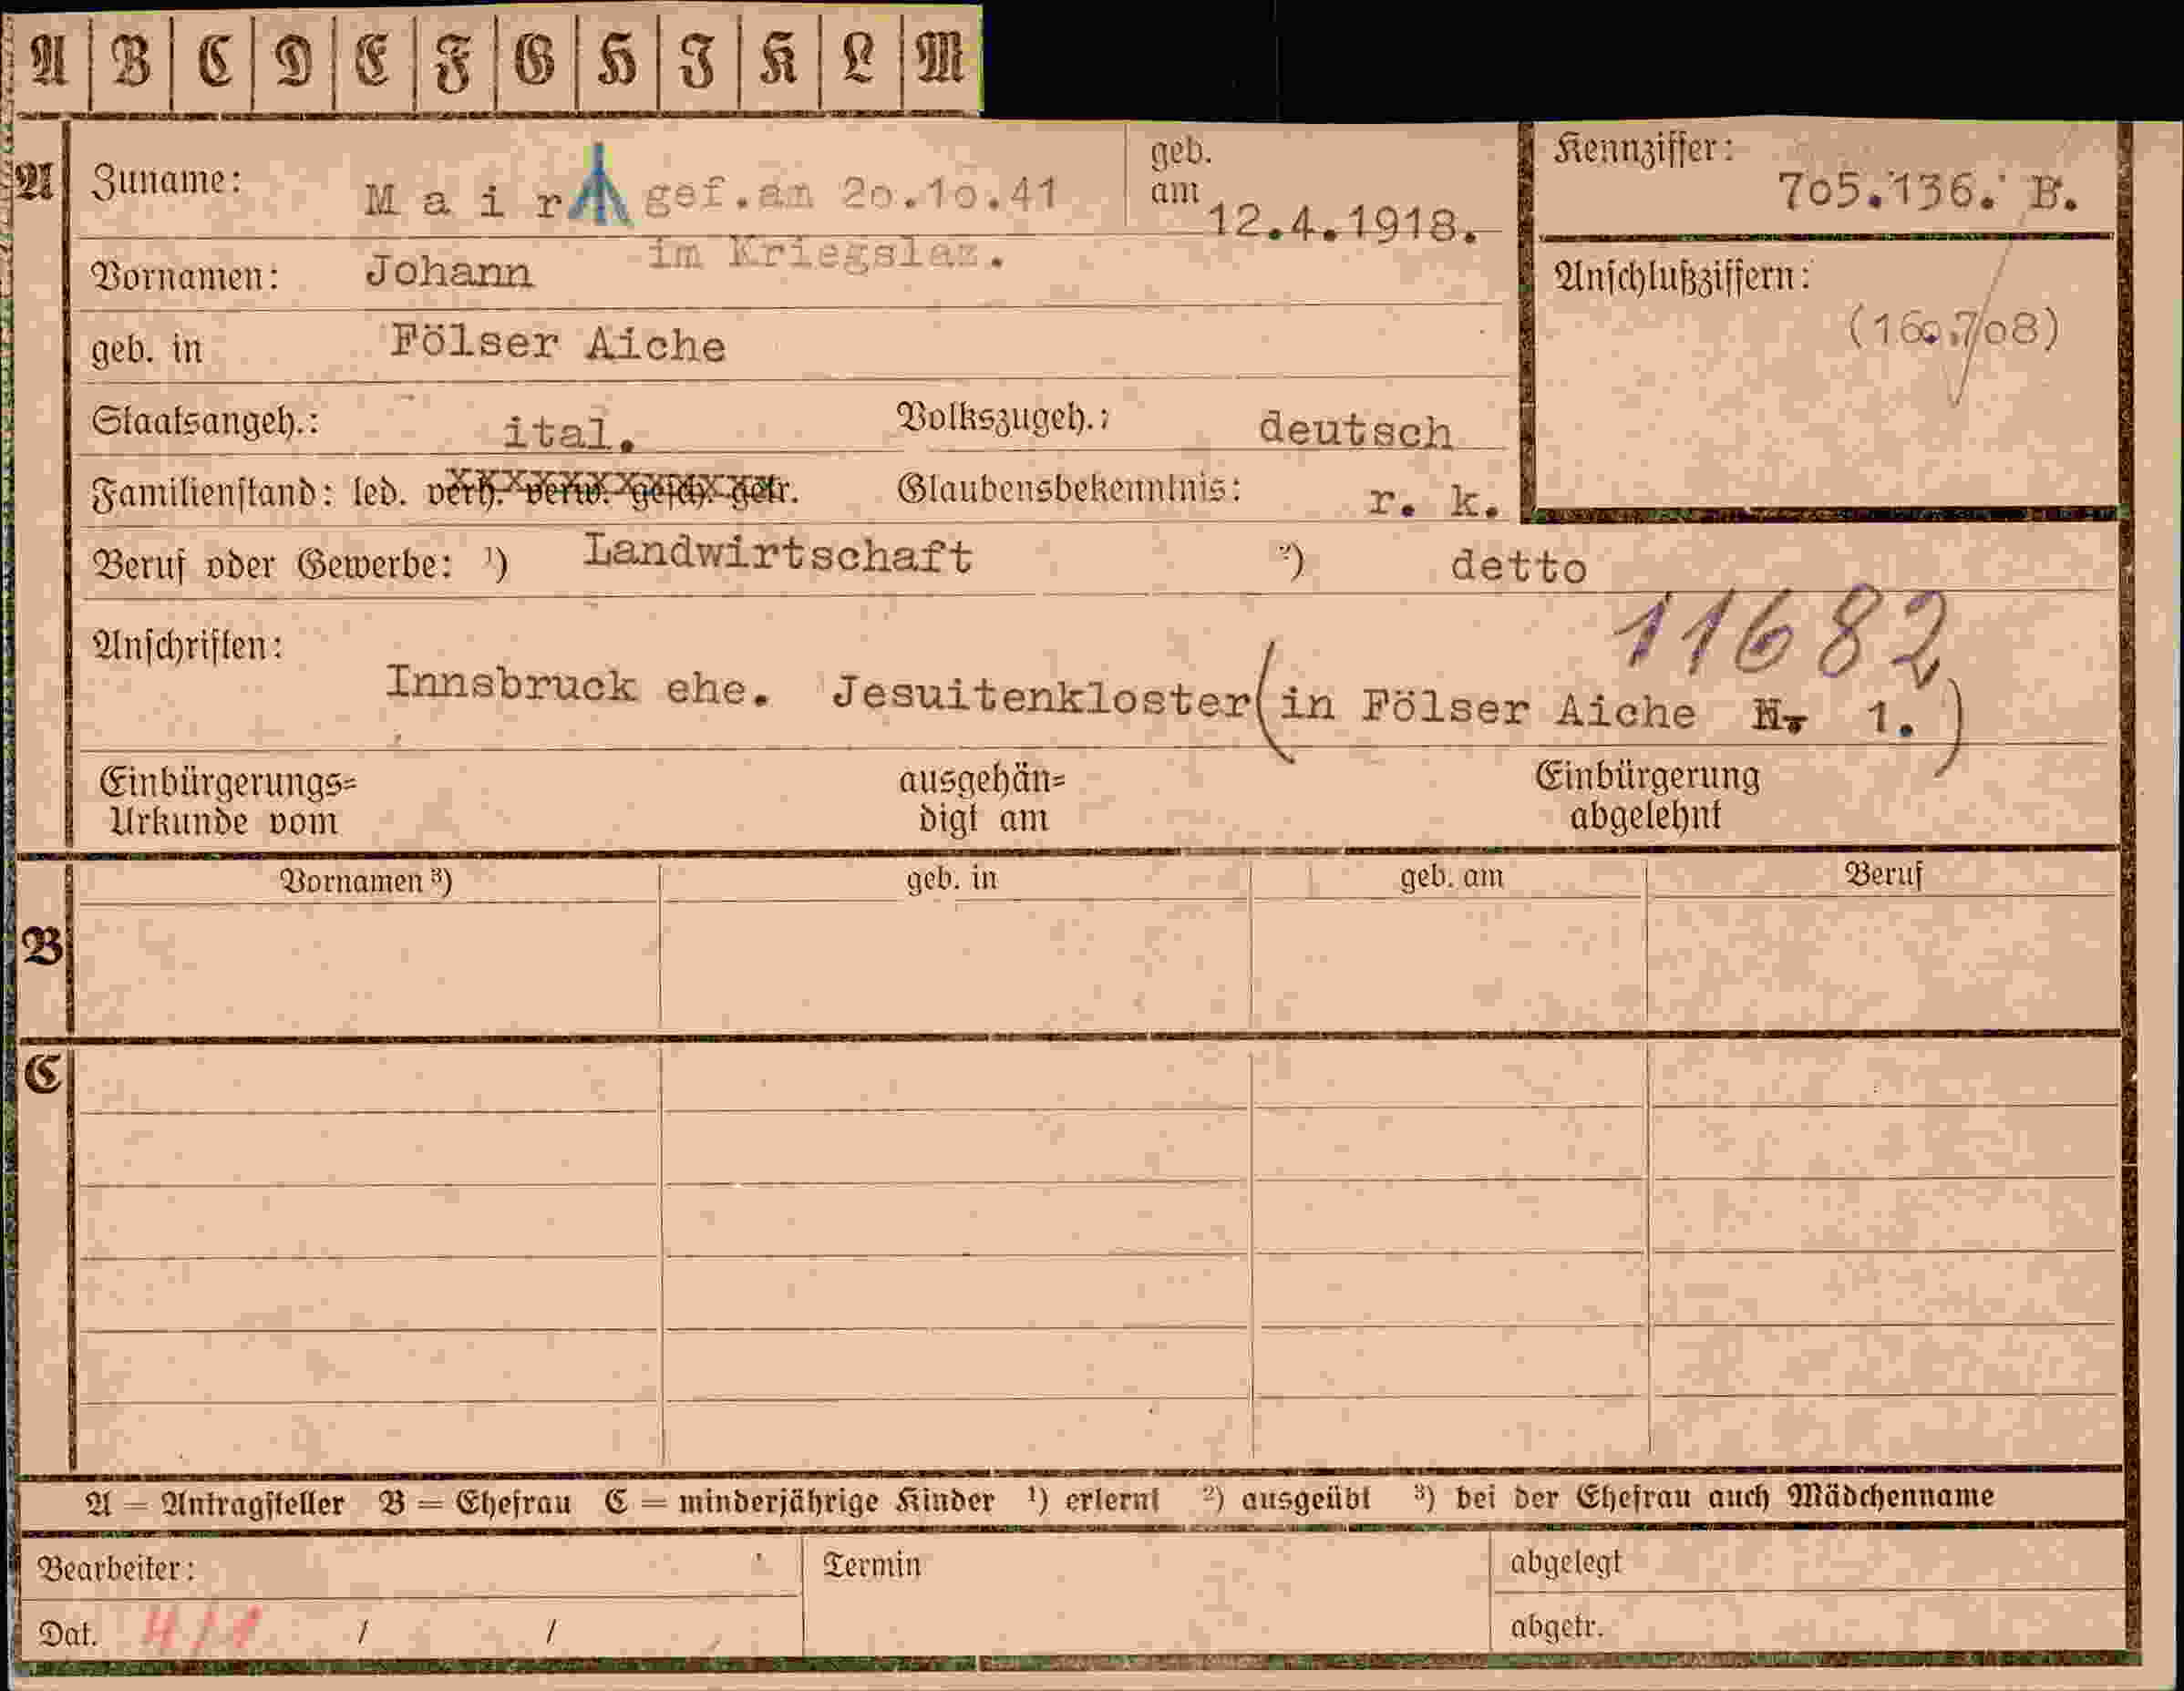 A B C D E F G H I K L M
A Zuname: Mair gef.am 20.10.41 geb. am 12.4.1918. Kennziffer: 705.136. B.
Vornamen: Johann im Kriegslaz. Anschlußziffern:
geb. in Fölser Aiche (160.708)
Staatsangeh.: ital. Volkszugeh.: deutsch
Familienstand: led. verh. verw. gesch. getr. Glaubensbekenntnis: r. k.
Beruf oder Gewerbe: ¹) Landwirtschaft ²) detto
11682
Anschriften:
Innsbruck ehe. Jesuitenkloster (in Fölser Aiche N. 1.)
Einbürgerungs= ausgehän= Einbürgerung
Urkunde vom digt am abgelehnt
Vornamen ³) geb. in geb. am Beruf
B
C
A = Antragsteller B = Ehefrau C = minderjährige Kinder ¹) erlernt ²) ausgeübt ³) bei der Ehefrau auch Mädchenname
Bearbeiter: Termin abgelegt
Dat. / / abgetr.